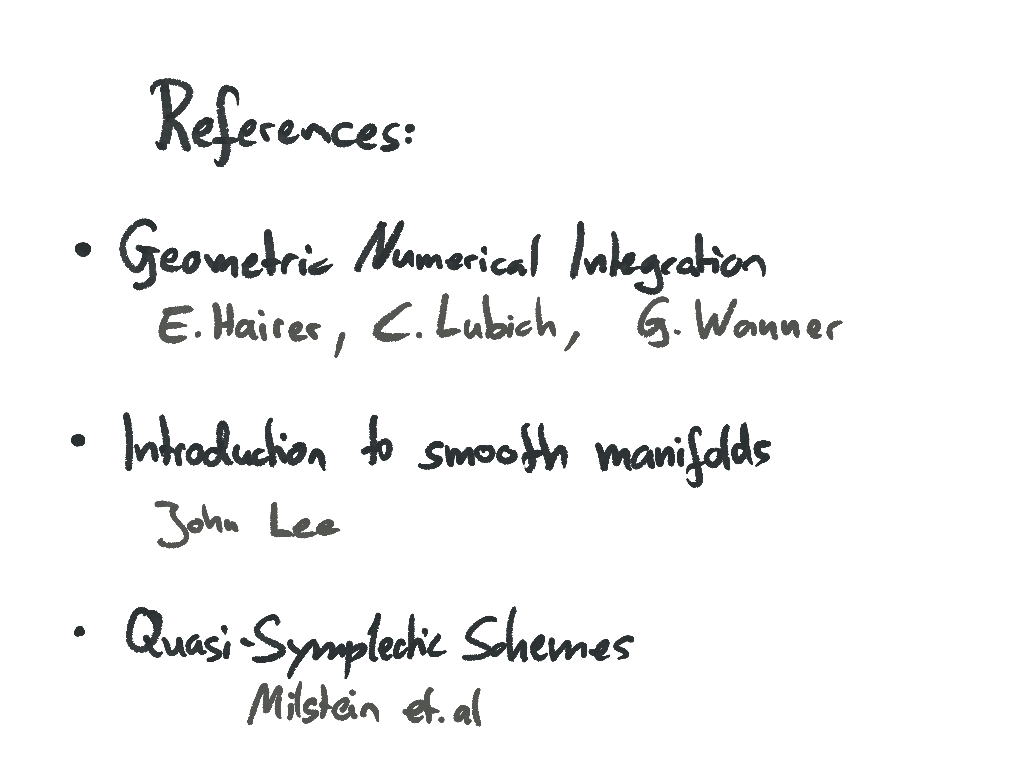 References:
• Geometric Numerical Integration
E. Hairer, C. Lubich, G. Wanner
• Introduction to smooth manifolds
John Lee
• Quasi-Symplectic Schemes
Milstein et. al